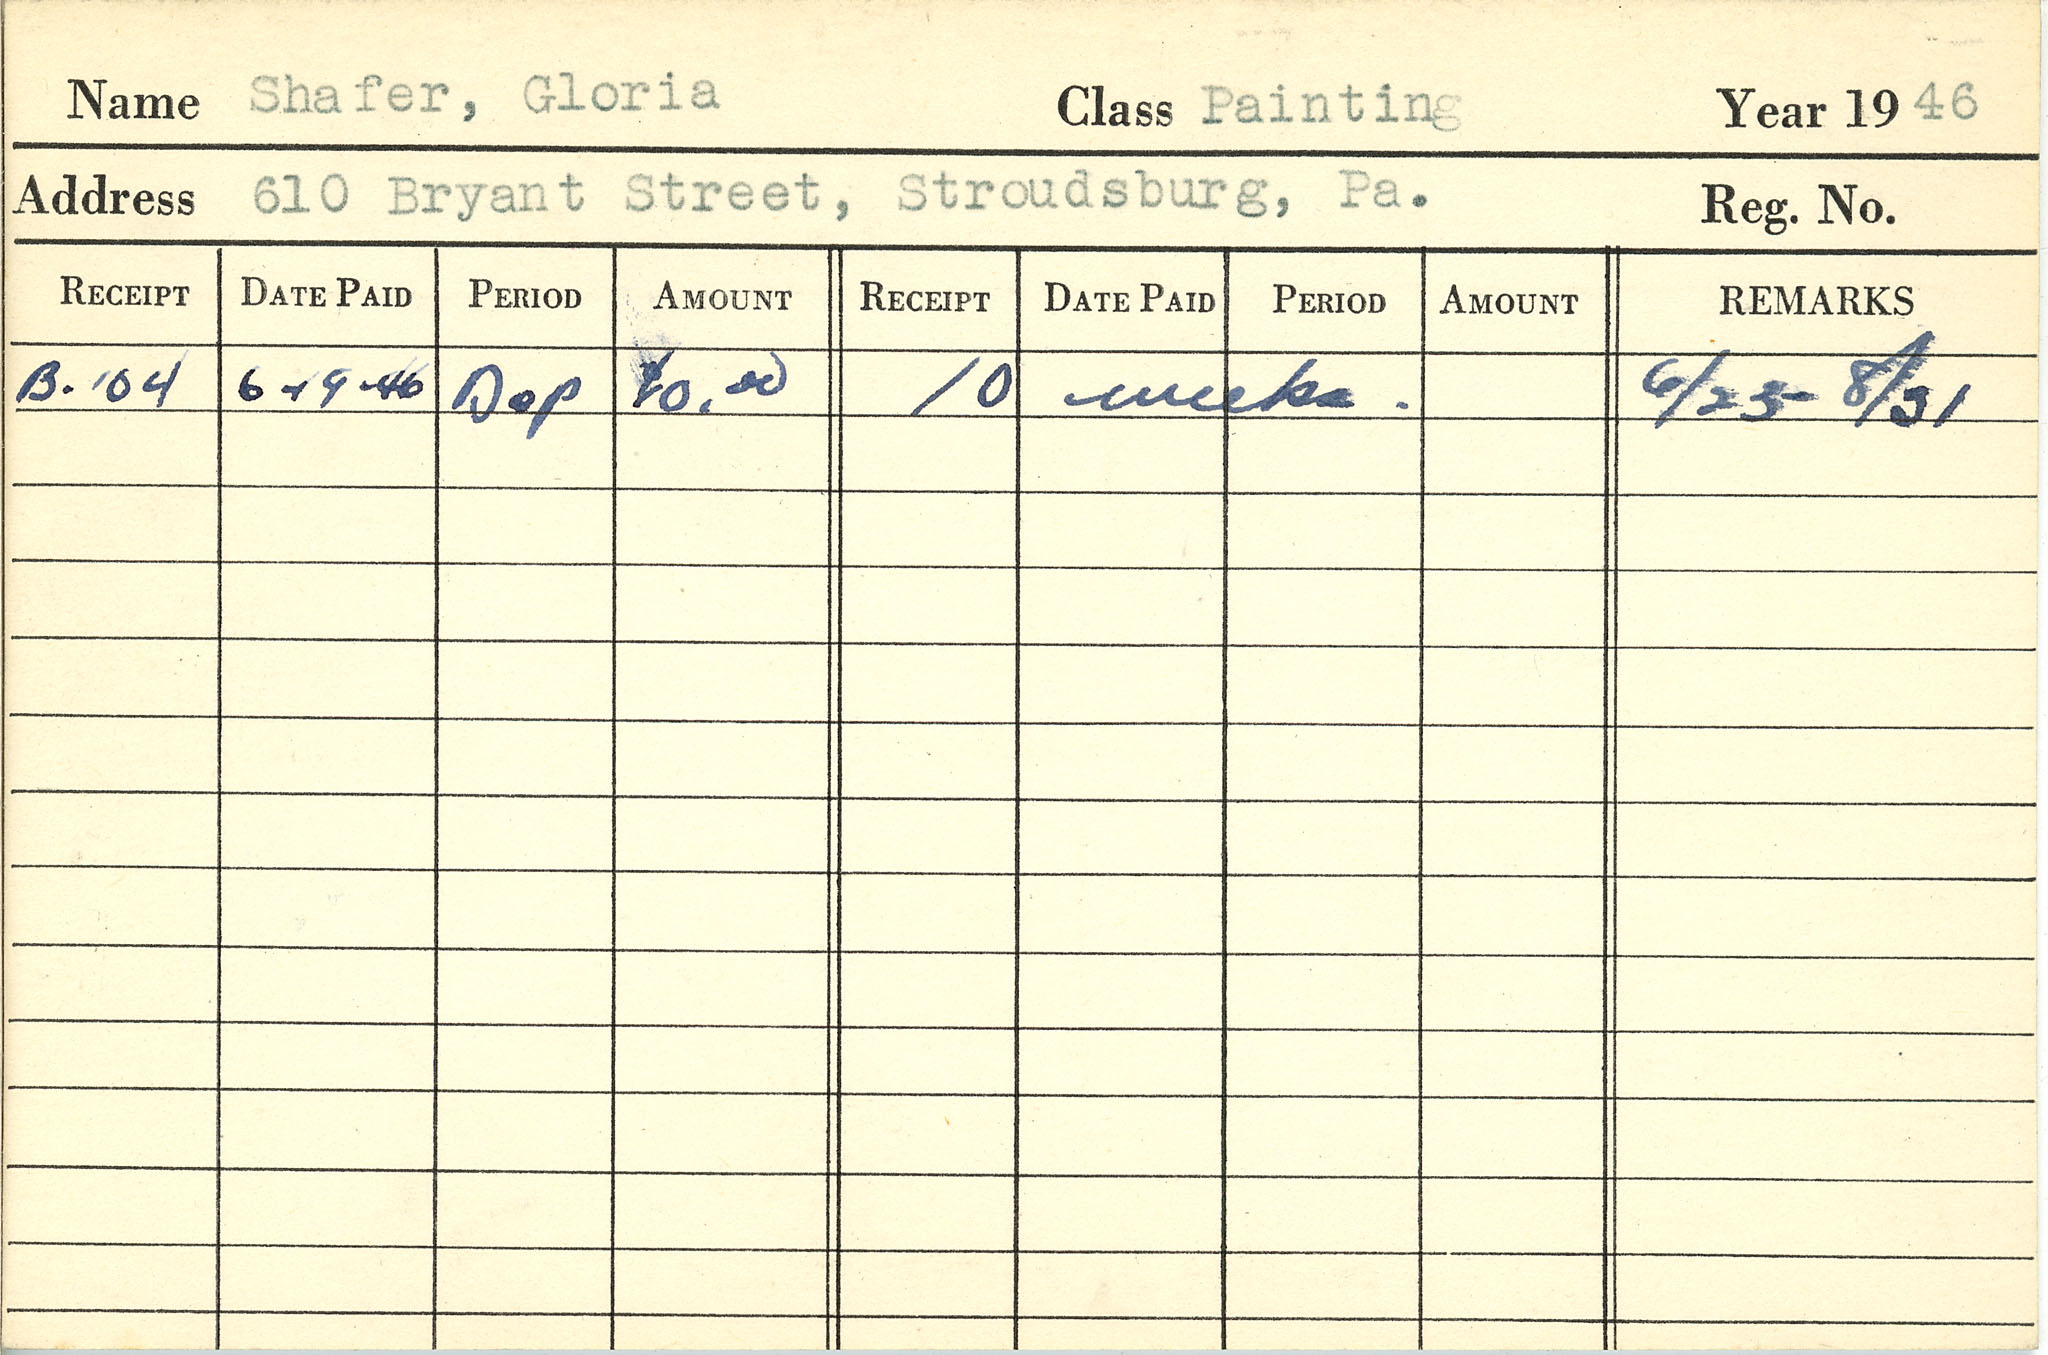 Name Shafer, Gloria Class Painting Year 1946
Address 610 Bryant Street, Stroudsburg, Pa. Reg. No.
RECEIPT DATE PAID PERIOD AMOUNT RECEIPT DATE PAID PERIOD AMOUNT REMARKS
B-104 6-19-46 Dep 10.00 10 weeks. 6/25-8/31